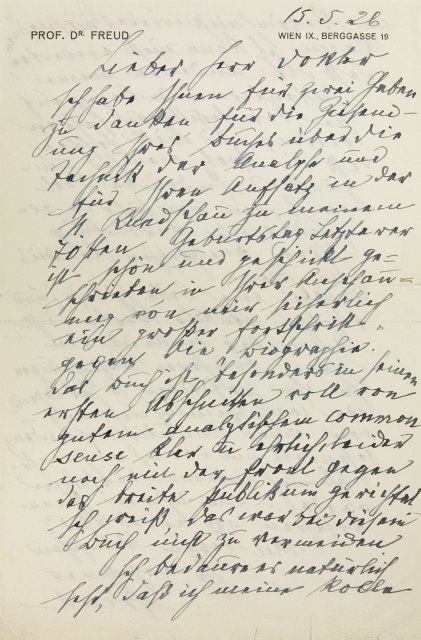 15.5.26
PROF. DR. FREUD
WIEN IX., BERGGASSE 19
Lieber Herr Doktor
Ich habe Ihnen für zwei Gaben
zu danken für die Zusend-
ung Ihres Buches über die
Technik der Analyse und
für Ihren Aufsatz in der
N. Rundschau zu meinem
70sten Geburtstag Letzterer
ist schön und geschickt ge=
schrieben in Ihrer Anschau=
ung von mir sicherlich
ein großer Fortschritt
gegen die Biographie.
Das Buch ist, besonders in seinen
ersten Abschnitten voll von
gutem analytischem common
sense klar u ehrlich leider
noch mit der Front gegen
das breite Publikum gerichtet
Ich weiß das war bei diesem
Buch nicht zu vermeiden
Ich bedaure es natürlich
sehr, daß ich meine Rolle